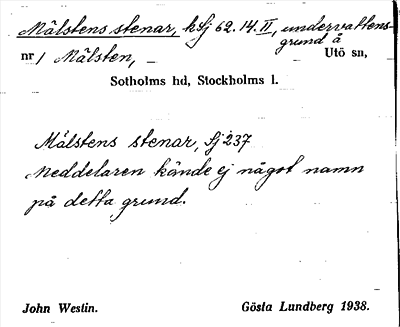 Mälstens stenar, kSj 62.14.II, undervattens-
grund å
nr 1 Mälsten, — Utö sn,
Sotholms hd, Stockholms l.
Mälstens stenar, Sj 237
Meddelaren kände ej något namn
på detta grund.
John Westin. Gösta Lundberg 1938.